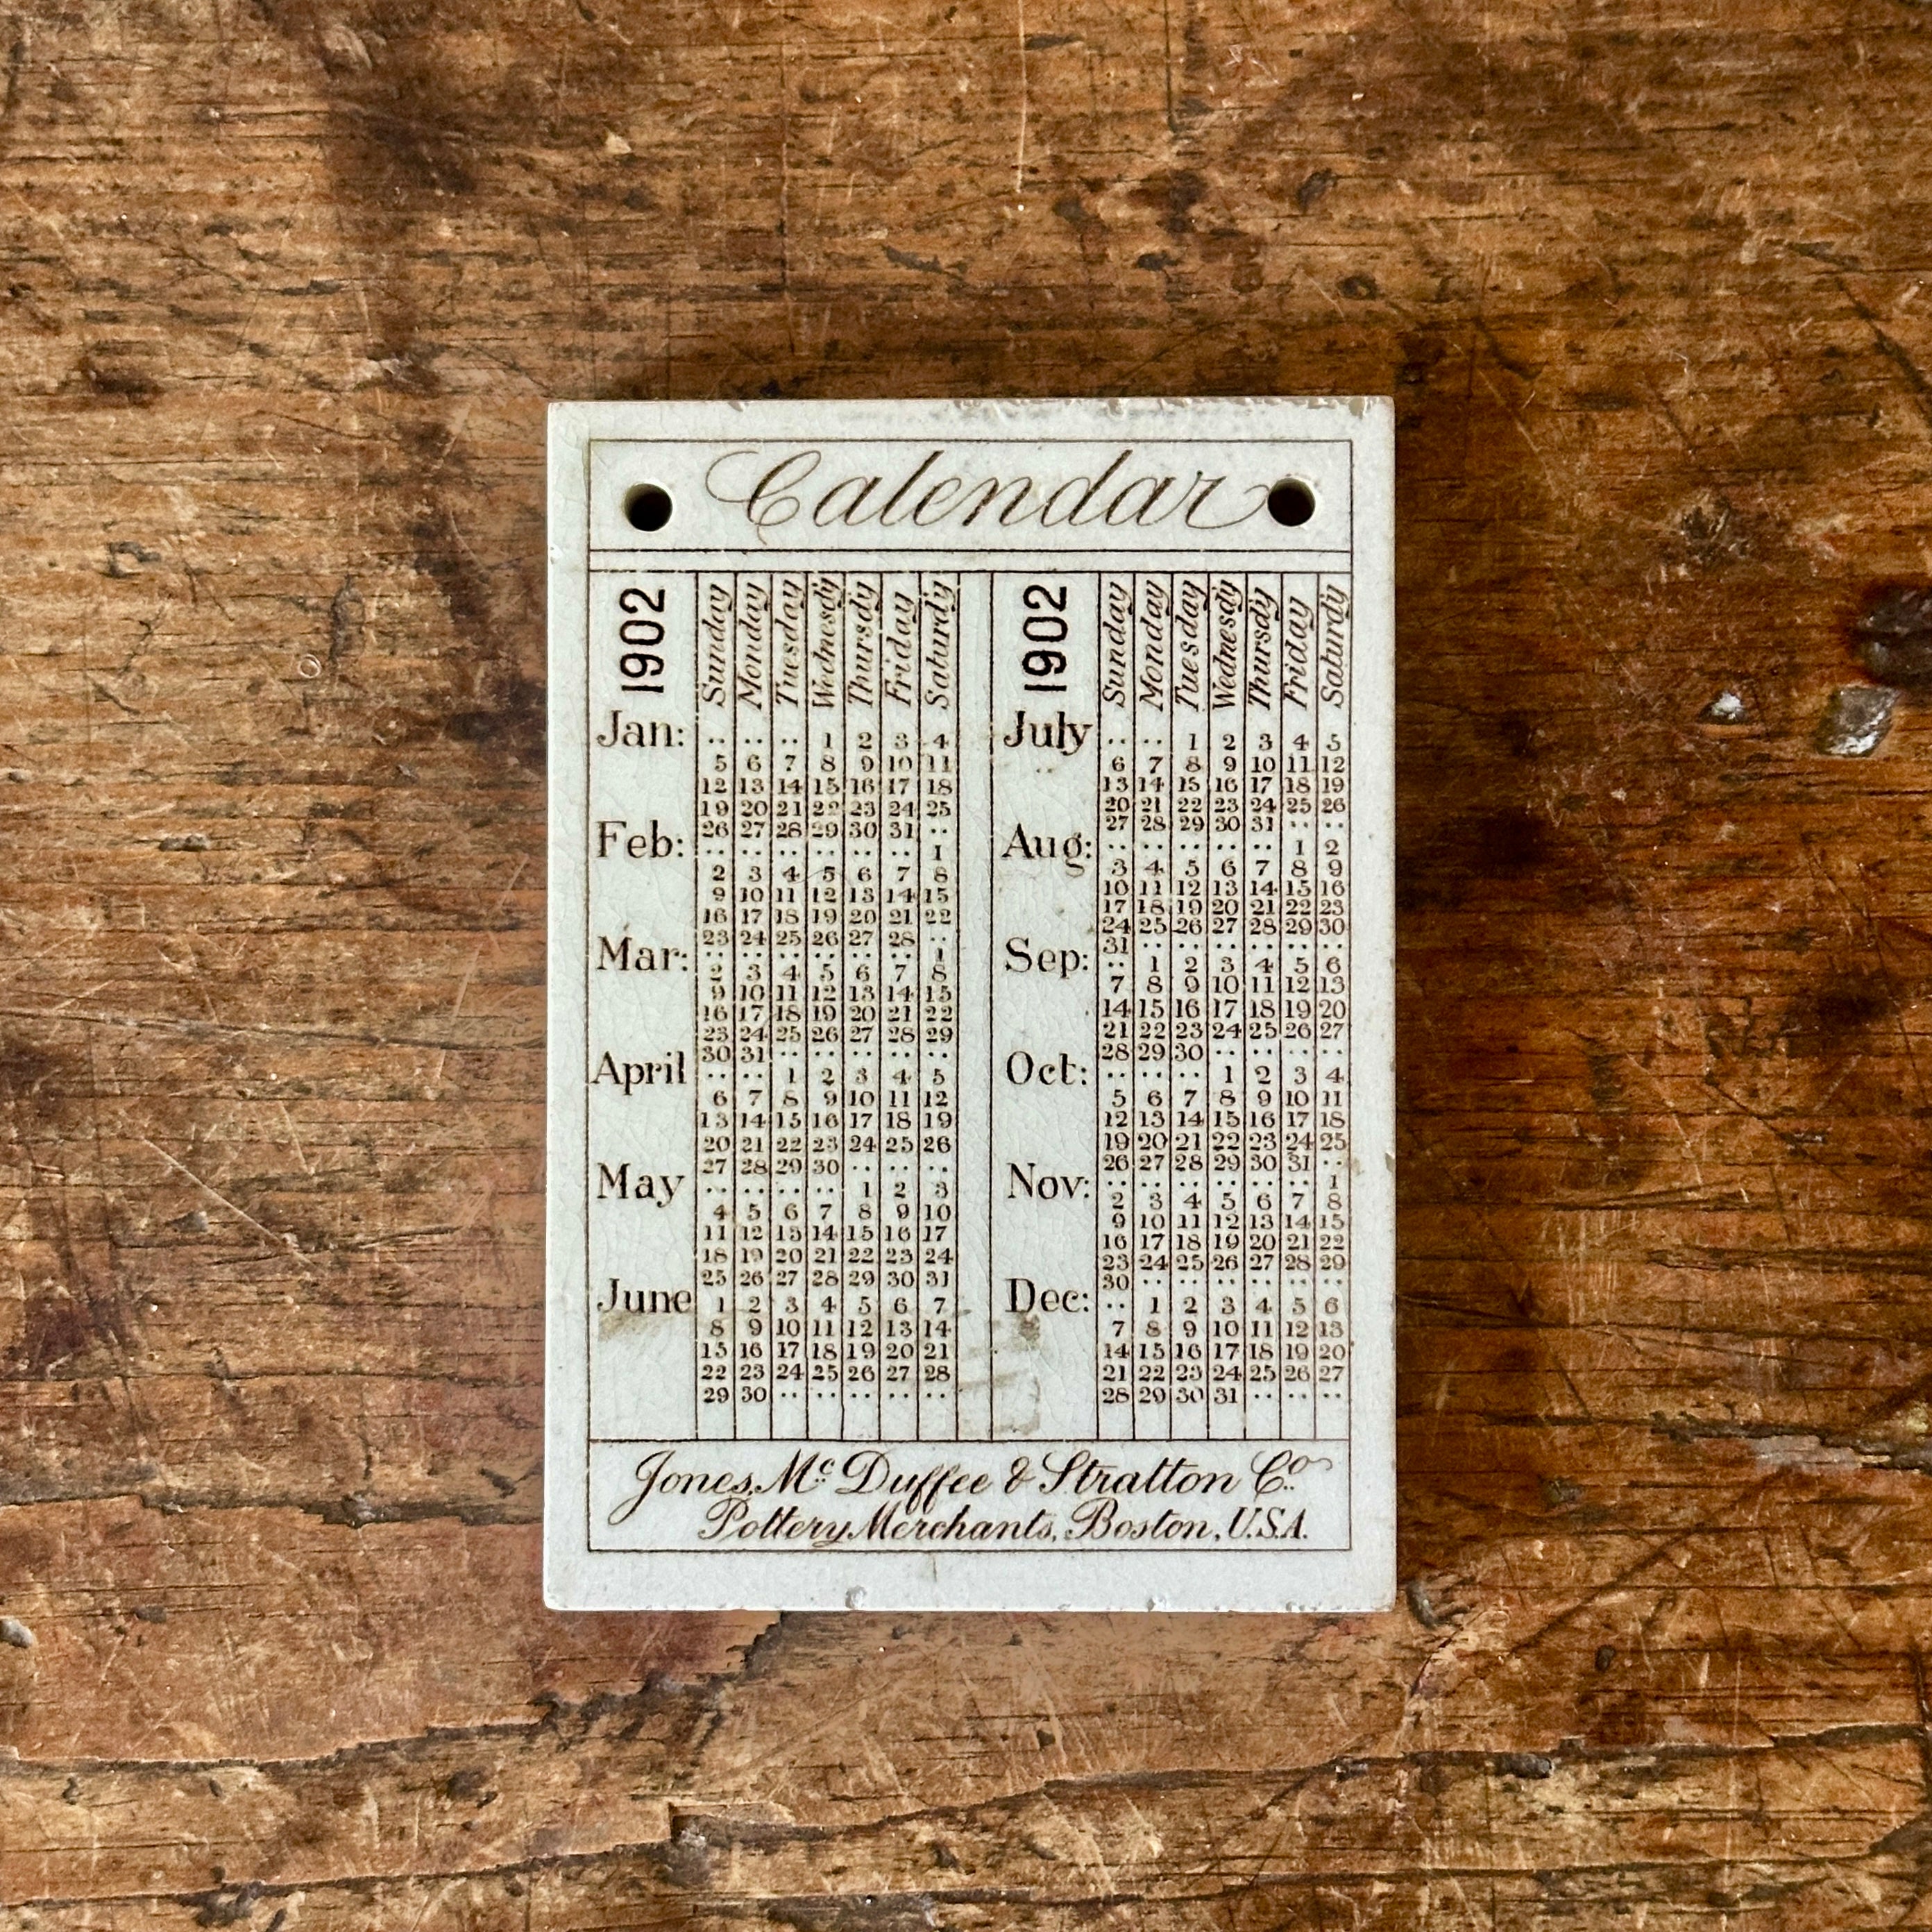 Calendar
1902 Sunday Monday Tuesday Wednesdy Thursdy Friday Saturdy
Jan: .. .. .. 1 2 3 4
5 6 7 8 9 10 11
12 13 14 15 16 17 18
19 20 21 22 23 24 25
26 27 28 29 30 31 ..
Feb: .. .. .. .. .. .. 1
2 3 4 5 6 7 8
9 10 11 12 13 14 15
16 17 18 19 20 21 22
23 24 25 26 27 28 ..
Mar: .. .. .. .. .. .. 1
2 3 4 5 6 7 8
9 10 11 12 13 14 15
16 17 18 19 20 21 22
23 24 25 26 27 28 29
30 31 .. .. .. .. ..
April .. .. 1 2 3 4 5
6 7 8 9 10 11 12
13 14 15 16 17 18 19
20 21 22 23 24 25 26
27 28 29 30 .. .. ..
May .. .. .. .. 1 2 3
4 5 6 7 8 9 10
11 12 13 14 15 16 17
18 19 20 21 22 23 24
25 26 27 28 29 30 31
June 1 2 3 4 5 6 7
8 9 10 11 12 13 14
15 16 17 18 19 20 21
22 23 24 25 26 27 28
29 30 .. .. .. .. ..
1902 Sunday Monday Tuesday Wednesdy Thursdy Friday Saturdy
July .. .. 1 2 3 4 5
6 7 8 9 10 11 12
13 14 15 16 17 18 19
20 21 22 23 24 25 26
27 28 29 30 31 .. ..
Aug: .. .. .. .. .. 1 2
3 4 5 6 7 8 9
10 11 12 13 14 15 16
17 18 19 20 21 22 23
24 25 26 27 28 29 30
31 .. .. .. .. .. ..
Sep: .. 1 2 3 4 5 6
7 8 9 10 11 12 13
14 15 16 17 18 19 20
21 22 23 24 25 26 27
28 29 30 .. .. .. ..
Oct: .. .. .. 1 2 3 4
5 6 7 8 9 10 11
12 13 14 15 16 17 18
19 20 21 22 23 24 25
26 27 28 29 30 31 ..
Nov: .. .. .. .. .. .. 1
2 3 4 5 6 7 8
9 10 11 12 13 14 15
16 17 18 19 20 21 22
23 24 25 26 27 28 29
30 .. .. .. .. .. ..
Dec: .. 1 2 3 4 5 6
7 8 9 10 11 12 13
14 15 16 17 18 19 20
21 22 23 24 25 26 27
28 29 30 31 .. .. ..
Jones, Mc Duffee & Stratton Co.
Pottery Merchants, Boston, U.S.A.